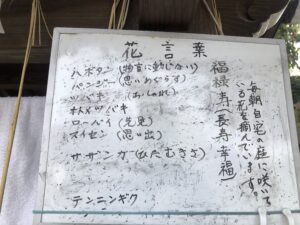 花言葉
ハボタン(物言に動じない)
パンジー(思いめぐらす)
ツバキ
オトメツバキ
ローバイ(先見)
スイセン(思い出)
サザンカ(ひたむきさ)
テンニンギク
福禄寿(長寿幸福)
毎朝自宅の庭に咲いて
いる花を摘んでいます。